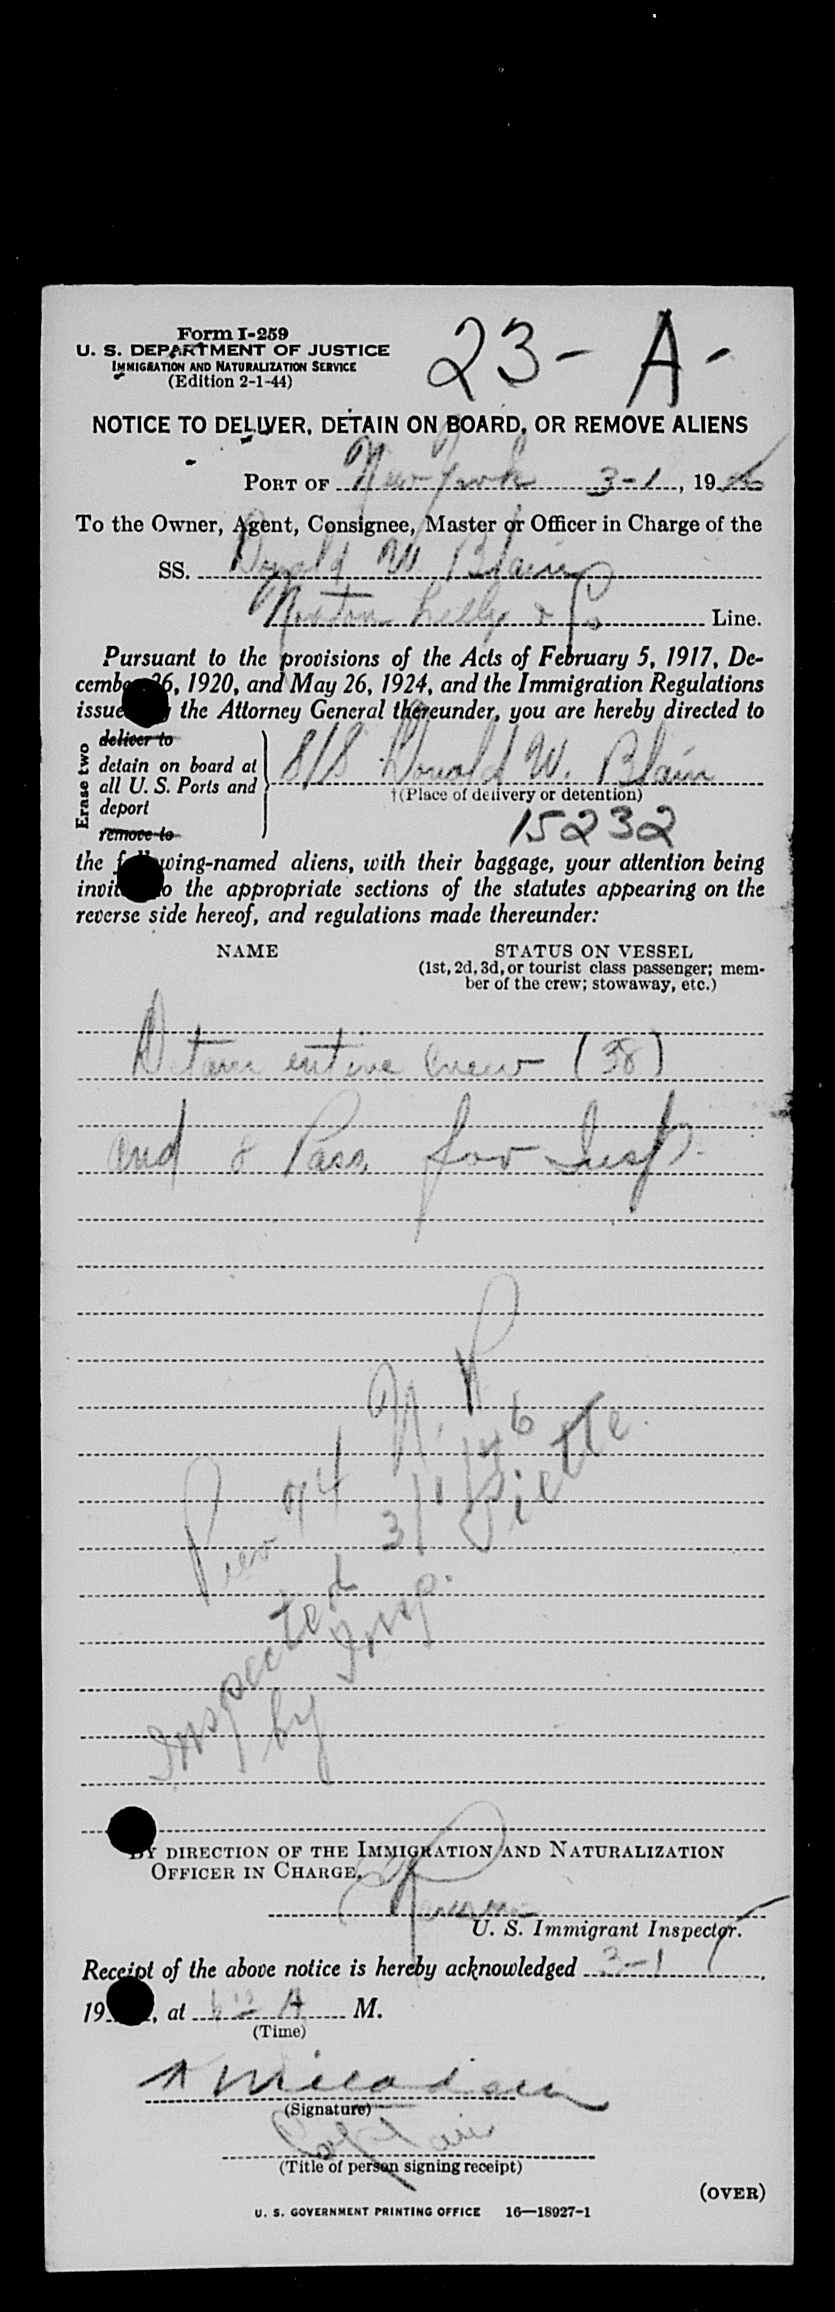 Form I-259
U. S. DEPARTMENT OF JUSTICE
IMMIGRATION AND NATURALIZATION SERVICE
(Edition 2-1-44)
23- A-
NOTICE TO DELIVER, DETAIN ON BOARD, OR REMOVE ALIENS
PORT OF New York 3-1, 19
To the Owner, Agent, Consignee, Master or Officer in Charge of the
SS. Donald W. Blain
Norton Lilly & Co Line.
Pursuant to the provisions of the Acts of February 5, 1917, De-
cember 26, 1920, and May 26, 1924, and the Immigration Regulations
issued by the Attorney General thereunder, you are hereby directed to
Erase two
deliver to
detain on board at
all U. S. Ports and
deport
remove to
S/S Donald W. Blain
†(Place of delivery or detention)
15232
the following-named aliens, with their baggage, your attention being
invited to the appropriate sections of the statutes appearing on the
reverse side hereof, and regulations made thereunder:
NAME
STATUS ON VESSEL
(1st, 2d, 3d, or tourist class passenger; mem-
ber of the crew; stowaway, etc.)
Detain entire crew (38)
and 8 Pass. for Insp.
Pier 74 N. R
Inspected 3/1/46
by Insp. Piette
BY DIRECTION OF THE IMMIGRATION AND NATURALIZATION
OFFICER IN CHARGE.
U. S. Immigrant Inspector.
Receipt of the above notice is hereby acknowledged 3-1,
19, at A M.
(Time)
(Signature)
Captain
(Title of person signing receipt)
(OVER)
U. S. GOVERNMENT PRINTING OFFICE 16—18927-1